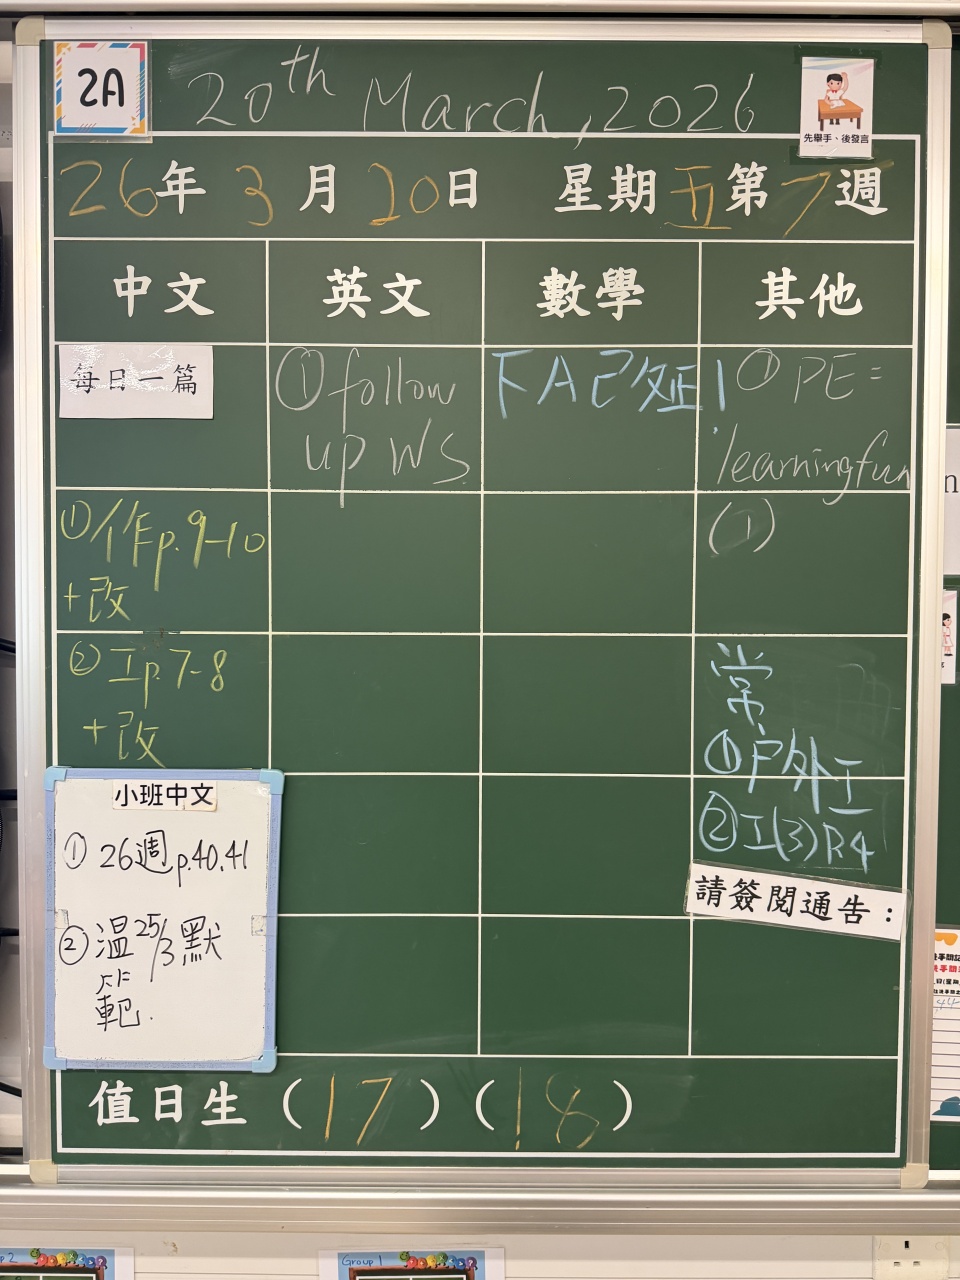 2A
20th March, 2026
先舉手、後發言
26年 3月 20日 星期五第7週
中文 英文 數學 其他
每日一篇
①作p.9-10
+改
②工p.7-8
+改
小班中文
① 26週p.40,41
② 溫25/3默
範.
①follow
up WS
下A已交正!
①PE:
learningfun
(1)
常
①户外工
②工(3)P.4
請簽閱通告：
值日生（17）（18）
Group 1